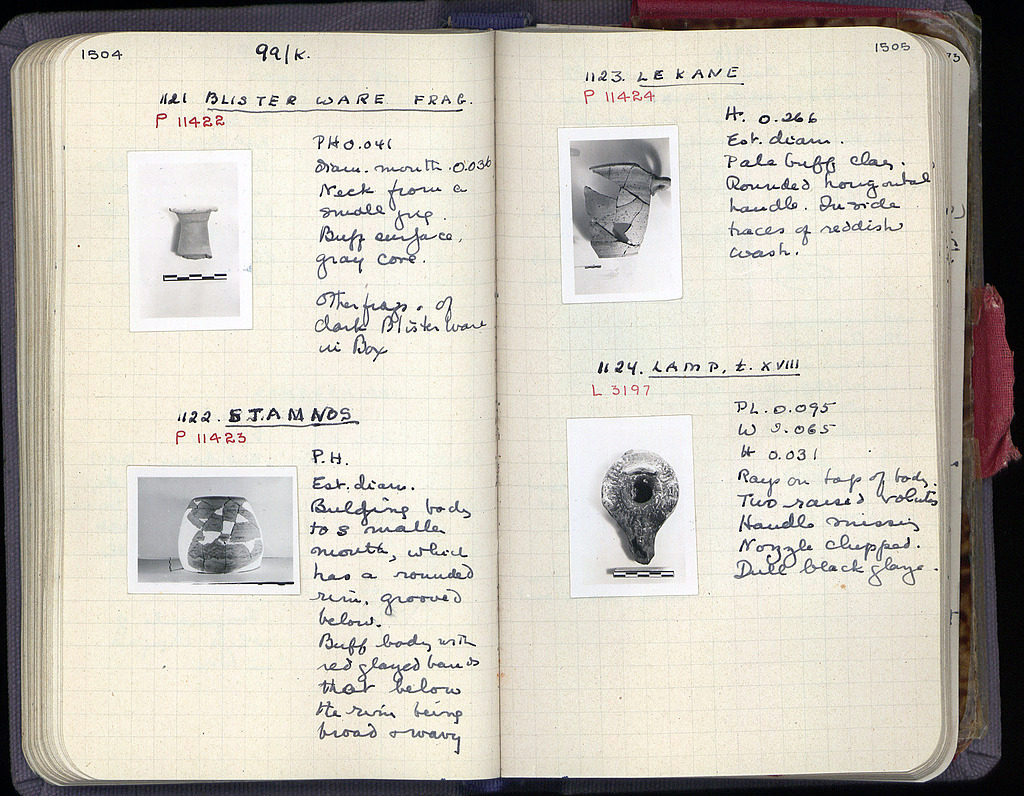 1504
99/K.
1121 BLISTER WARE FRAG.
P 11422
PH 0.041
Diam. mouth. 0.036
Neck from a
small jug.
Buff surface,
gray core.
Other frags. of
dark Blister ware
in Box
1122. STAMNOS
P 11423
P.H.
Est. diam.
Bulging body
to smaller
mouth, which
has a rounded
rim, grooved
below.
Buff body with
red glazed bands
that below
the rim being
broad & wavy
1505
1123. LEKANE
P 11424
H. 0.266
Est. diam.
Pale buff clay.
Rounded horizontal
handle. Inside
traces of reddish
wash.
1124. LAMP, t. XVIII
L 3197
PL. 0.095
W 0.065
H 0.031
Rays on top of body.
Two raised volutes
Handle missing
Nozzle chipped.
Dull black glaze.